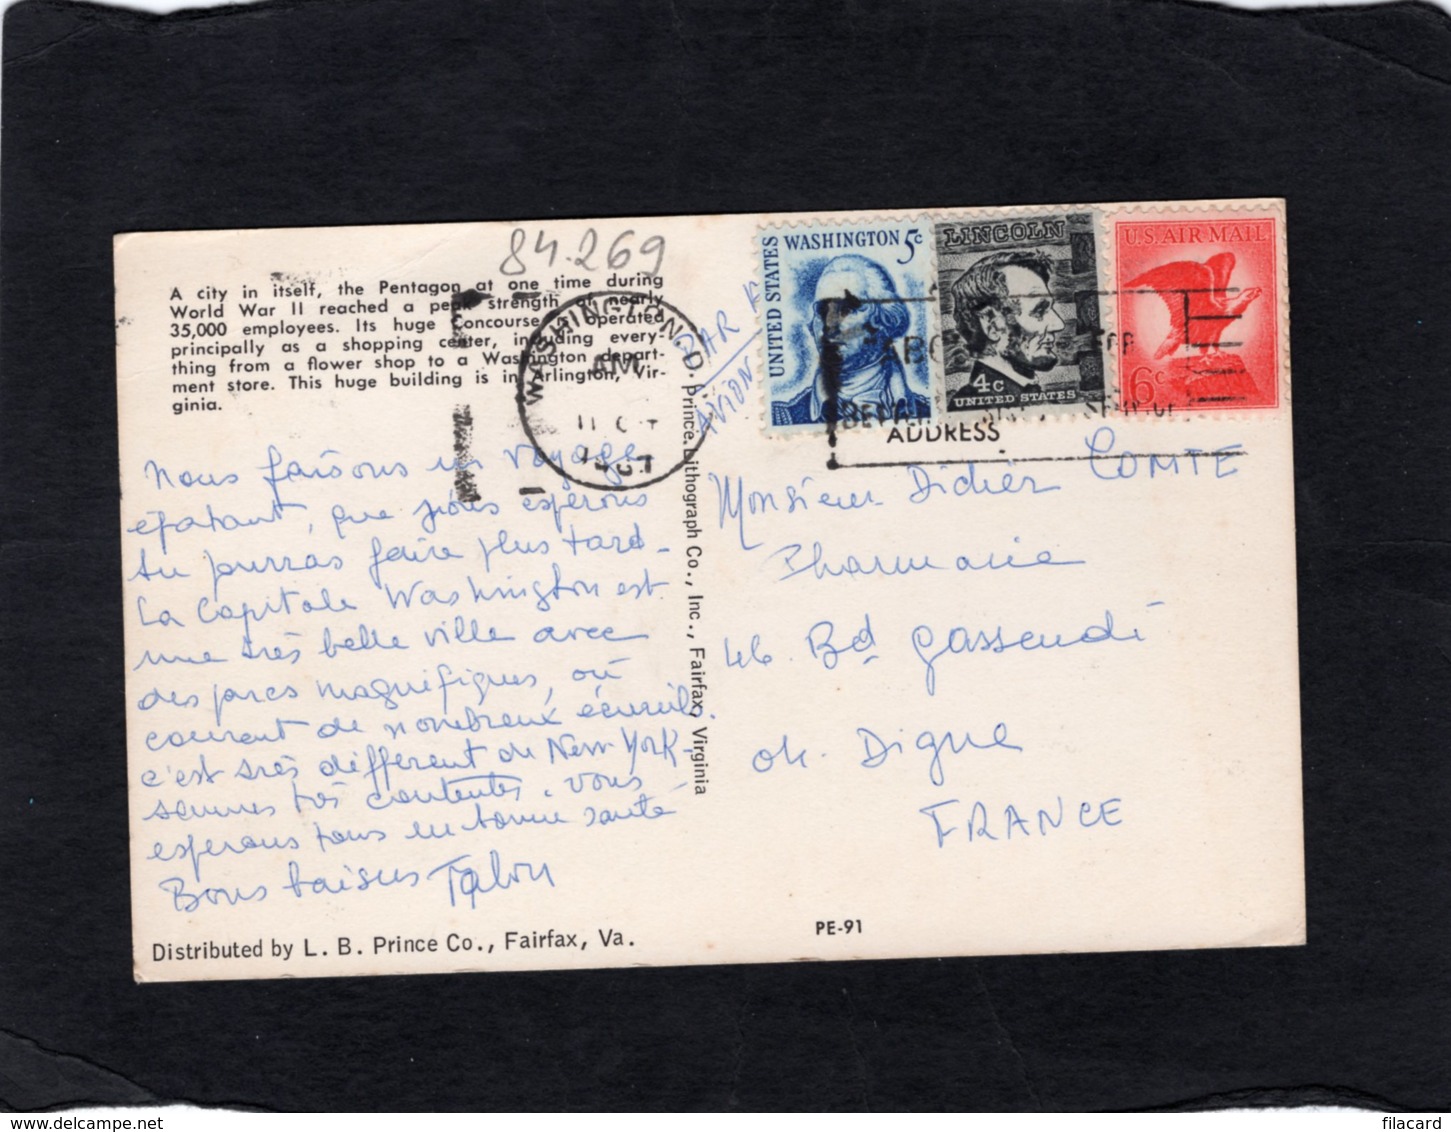 84.269
A city in itself, the Pentagon at one time during
World War II reached a peak strength of nearly
35,000 employees. Its huge Concourse is operated
principally as a shopping center, including every-
thing from a flower shop to a Washington depart-
ment store. This huge building is in Arlington, Vir-
ginia.
WASHINGTON, D.
AM
1967
PAR
AVION
UNITED STATES
WASHINGTON 5c
LINCOLN
4c
UNITED STATES
U.S. AIR MAIL
6c
ADDRESS
Nous faisons un voyage
épatant, que nous espérons
tu pourras faire plus tard.
La Capitale Washington est
une très belle ville avec
des parcs magnifiques, où
courent de nombreux écureuils.
c'est très différent de New-York.
sommes très contentes. vous
esperons tous en bonne santé
Bons baisers
Prince Lithograph Co., Inc., Fairfax, Virginia
Monsieur Didier COMTE
Pharmacie
46. Bd Gassendi
04. Digne
FRANCE
Distributed by L. B. Prince Co., Fairfax, Va.
PE-91
filacard